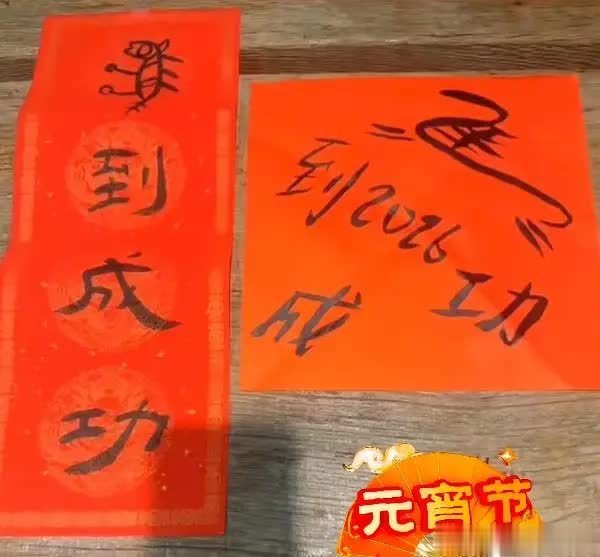 馬到成功
到2026
成功
元宵节